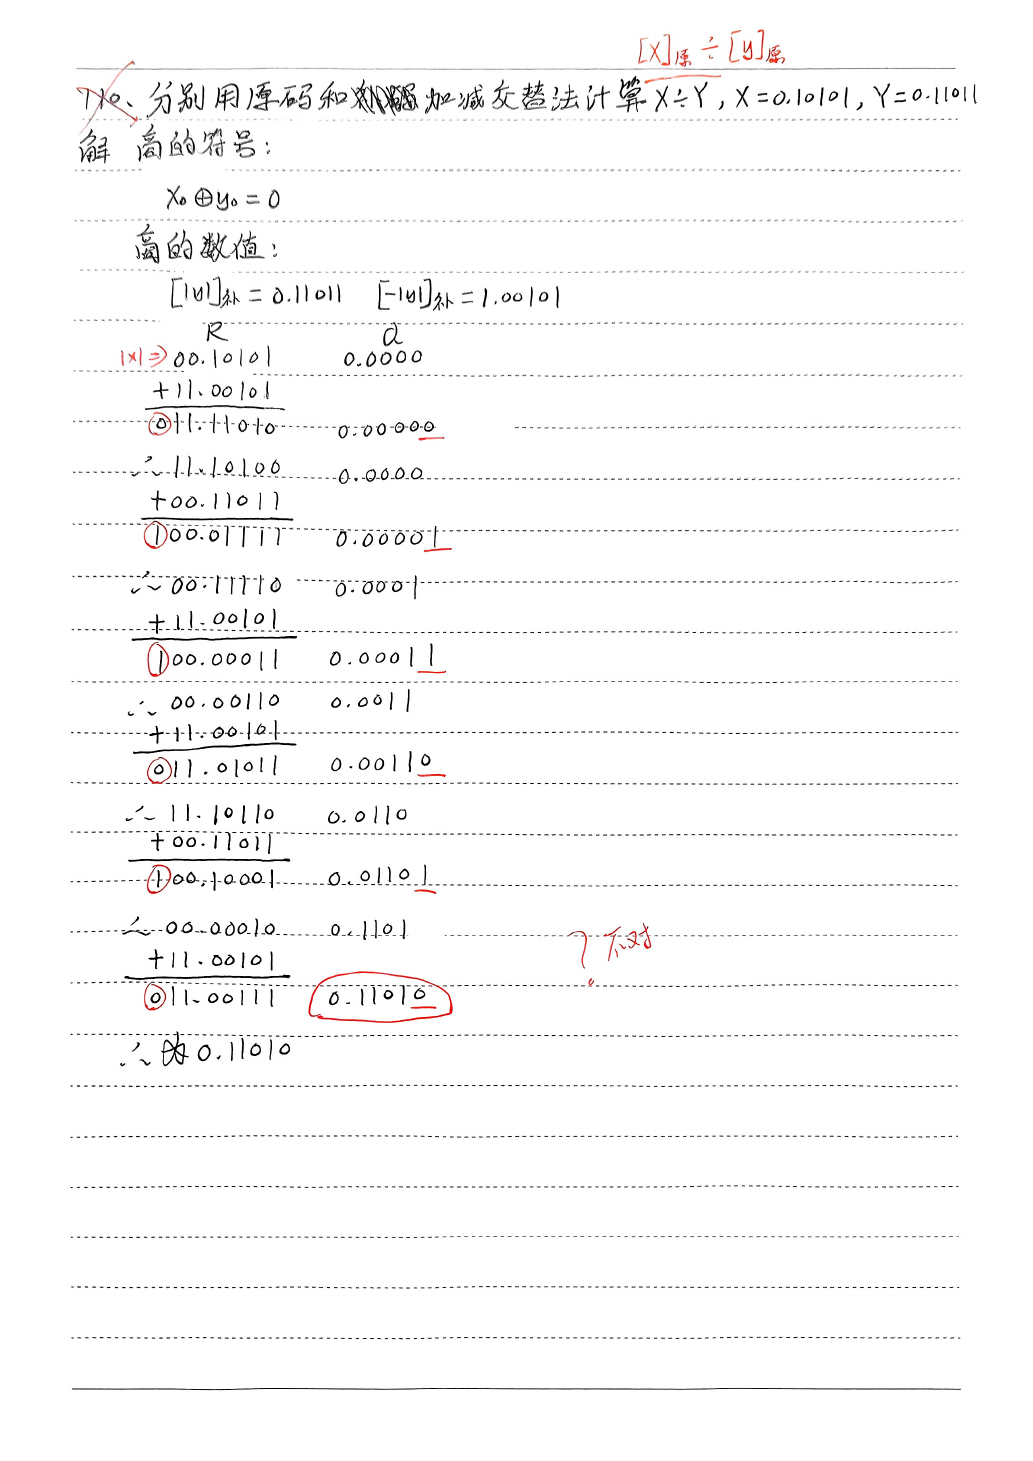 [X]原 ÷ [y]原
110、分别用原码和加减交替法计算 X÷Y, X=0.10101, Y=0.11011
解 商的符号:
X₀⊕y₀=0
商的数值:
[|y|]补=0.11011 [-|y|]补=1.00101
R Q
|x|⇒ 00.10101 0.0000
+11.00101
011.11010 0.00000
∴ 11.10100 0.0000
+00.11011
100.01111 0.00001
∴ 00.11110 0.0001
+11.00101
100.00011 0.00011
∴ 00.00110 0.0011
+11.00101
011.01011 0.00110
∴ 11.10110 0.0110
+00.11011
100.10001 0.01101
∴ 00.00010 0.1101
? 不对
+11.00101
011.00111 0.11010
∴ 为 0.11010